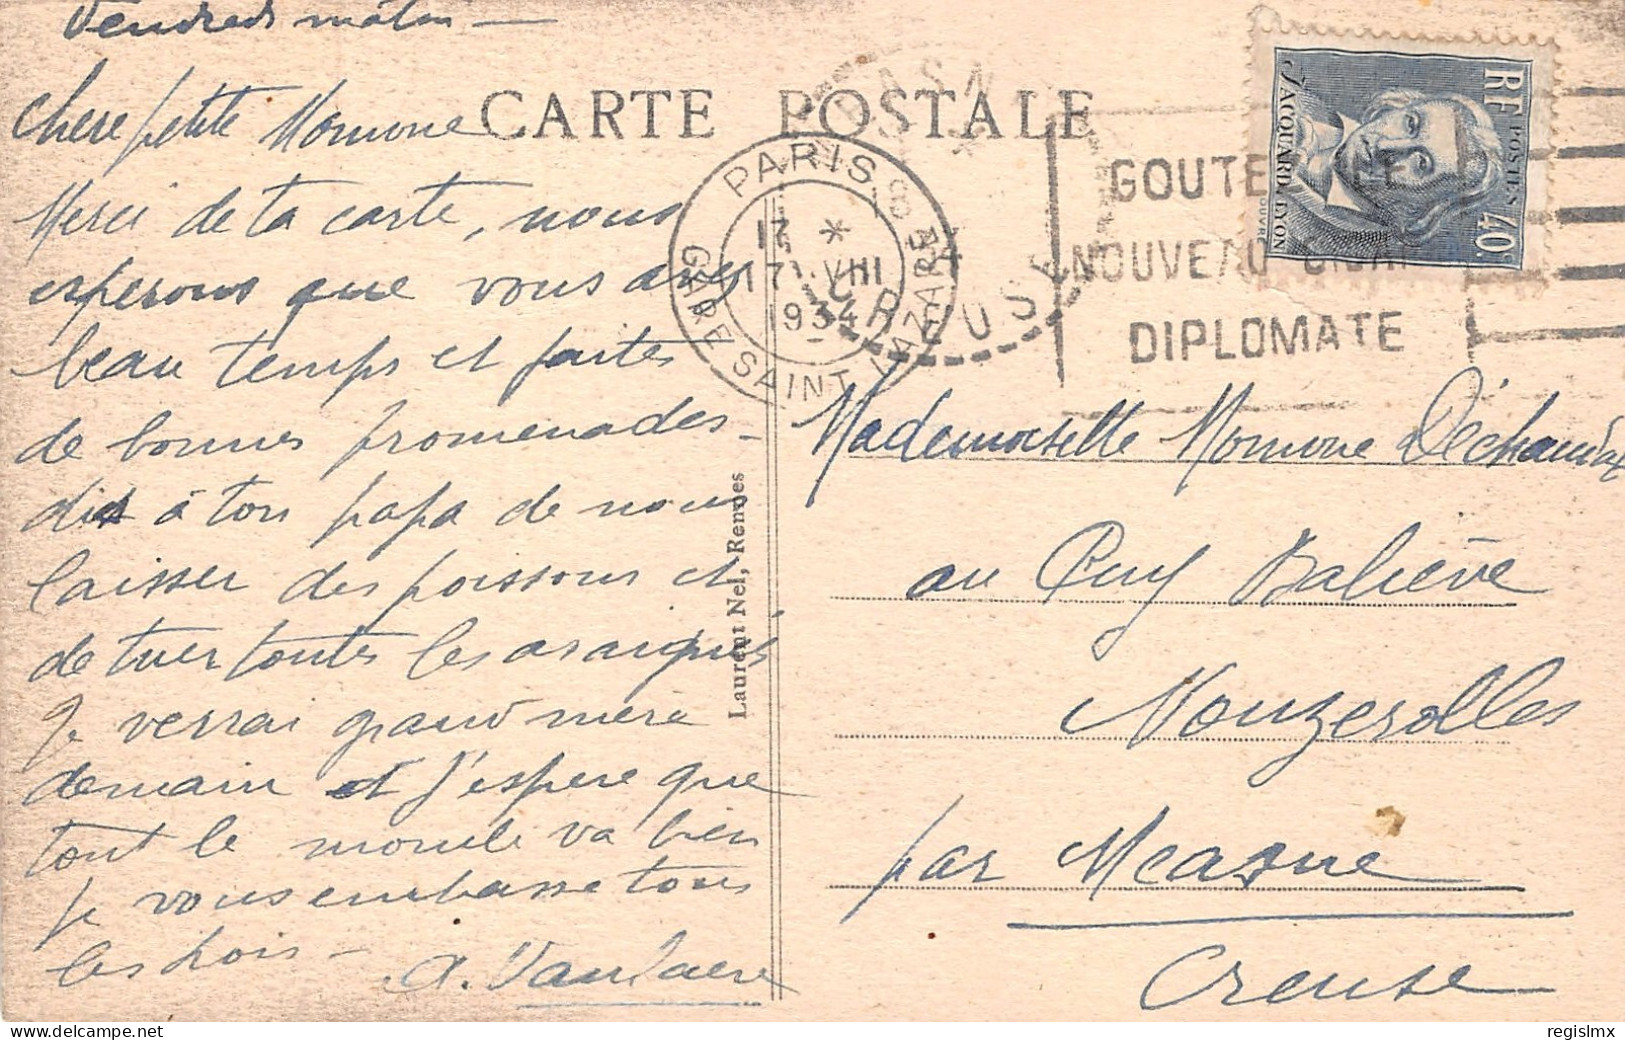 Vendredi matin —
CARTE POSTALE
Chere petite Momone
Merci de ta carte, nous
esperons que vous avez
beau temps et faites
de bonnes promenades —
dis à ton papa de nous
laisser des poissons et
de tuer toutes les araignés
Je verrai grand mère
demain et j'espere que
tout le monde va bien
Je vous embrasse tous
les trois —
Laurent Nel, Rennes
PARIS 8
GARE SAINT LAZARE
17 VIII
1934
CREUSE
GOUTEZ LE
NOUVEAU CIGARE
DIPLOMATE
RF
POSTES
40c
JACQUARD LYON
Mademoiselle Momone
au Puy Balière
Nouzerolles
par Measne
Creuse
regislmx
delcampe.net